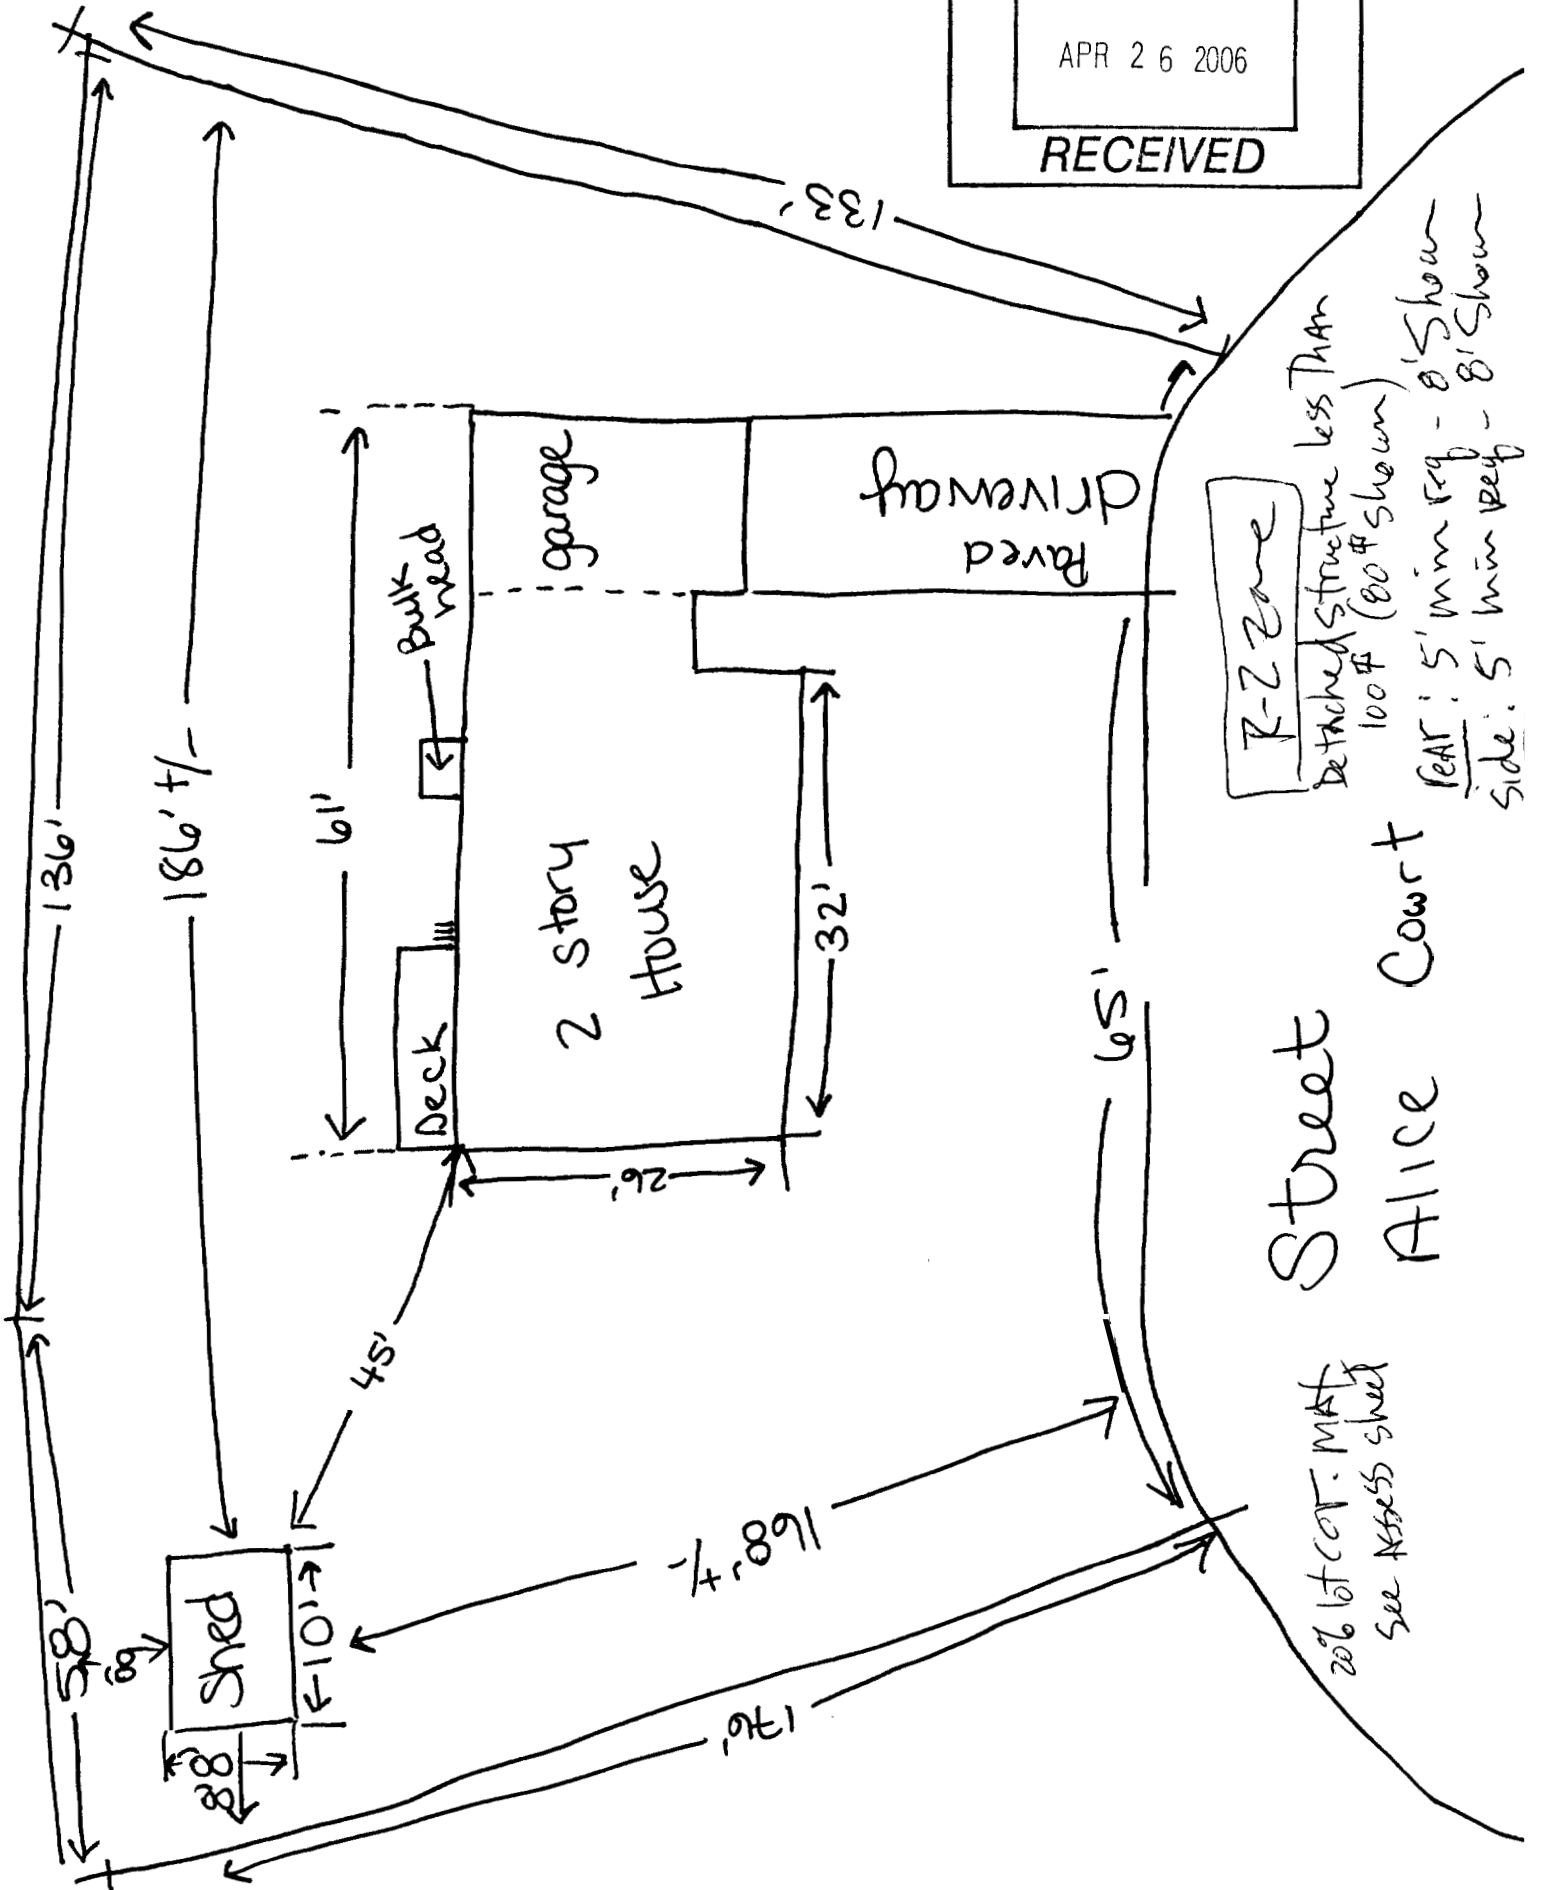 APR 26 2006
RECEIVED
133'
136'
186' +/-
61'
Bulk
head
garage
Paved
driveway
Deck
2 story
House
32'
26'
45'
65'
58'
8'
Shed
10'
8'
8'
168' +/-
176'
Street
Alice Court
R-2 Zone
Detached structure less Than
100# (80# shown)
rear: 5' min req - 8' Shown
Side: 5' min req - 8' Shown
20% lot cov. MAX
See Assess sheet